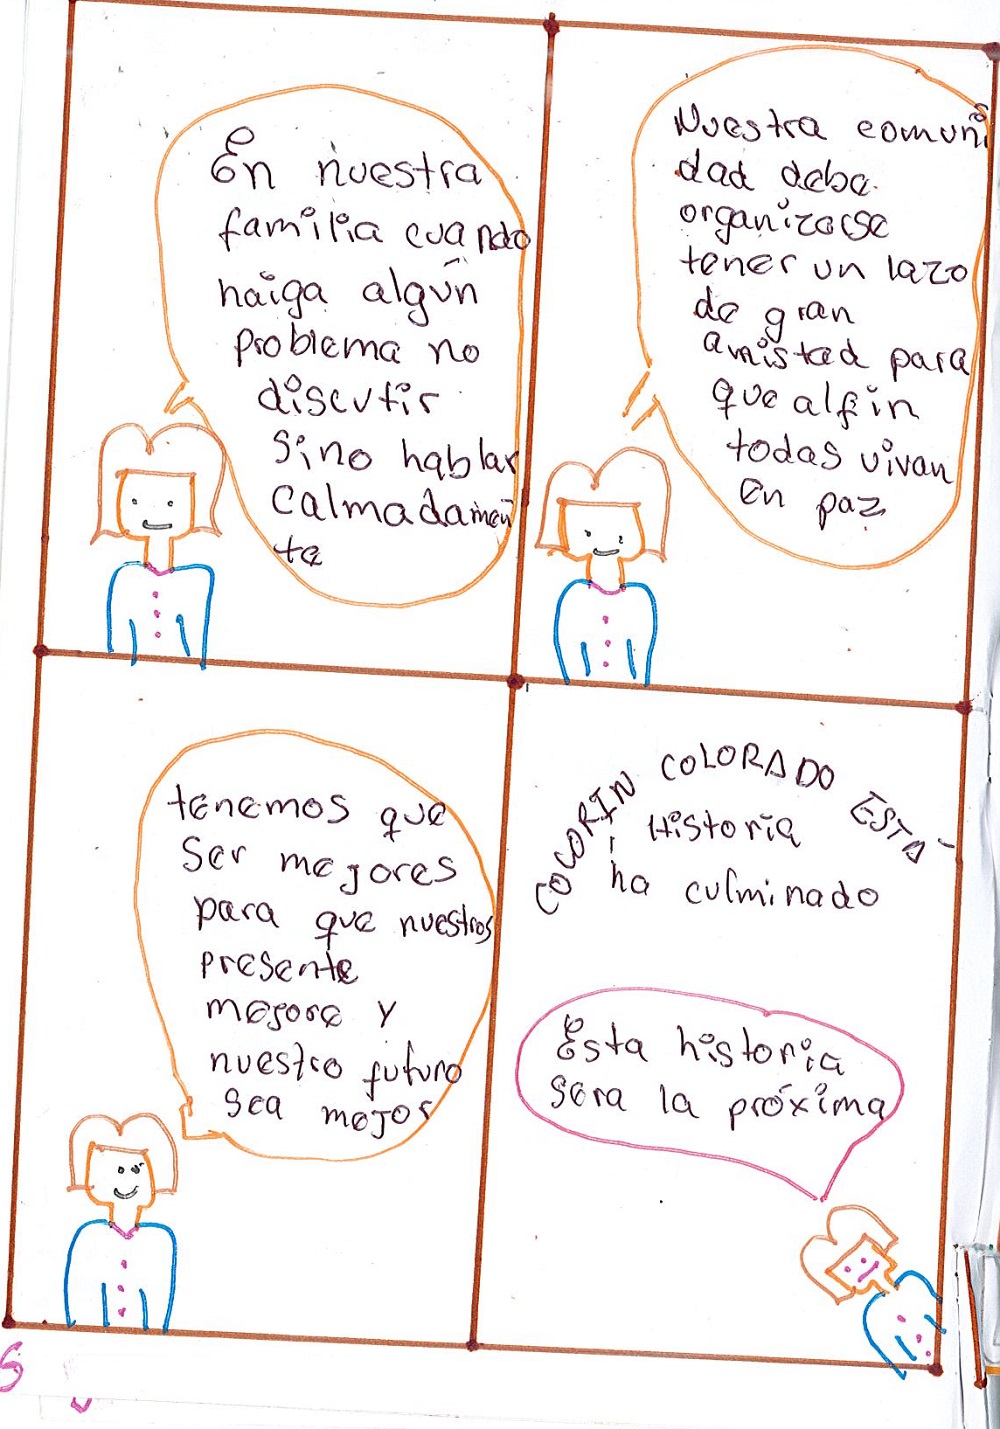 En nuestra
familia cuando
haiga algún
problema no
discutir
sino hablar
calmadamen
te
Nuestra comuni
dad deba
organizarse
tener un lazo
de gran
amistad para
que al fin
todas vivan
en paz
tenemos que
ser mejores
para que nuestros
presente
mejore y
nuestro futuro
sea mejor
COLORIN COLORADO ESTÁ
Historia
ha culminado
Esta historia
sera la próxima
S